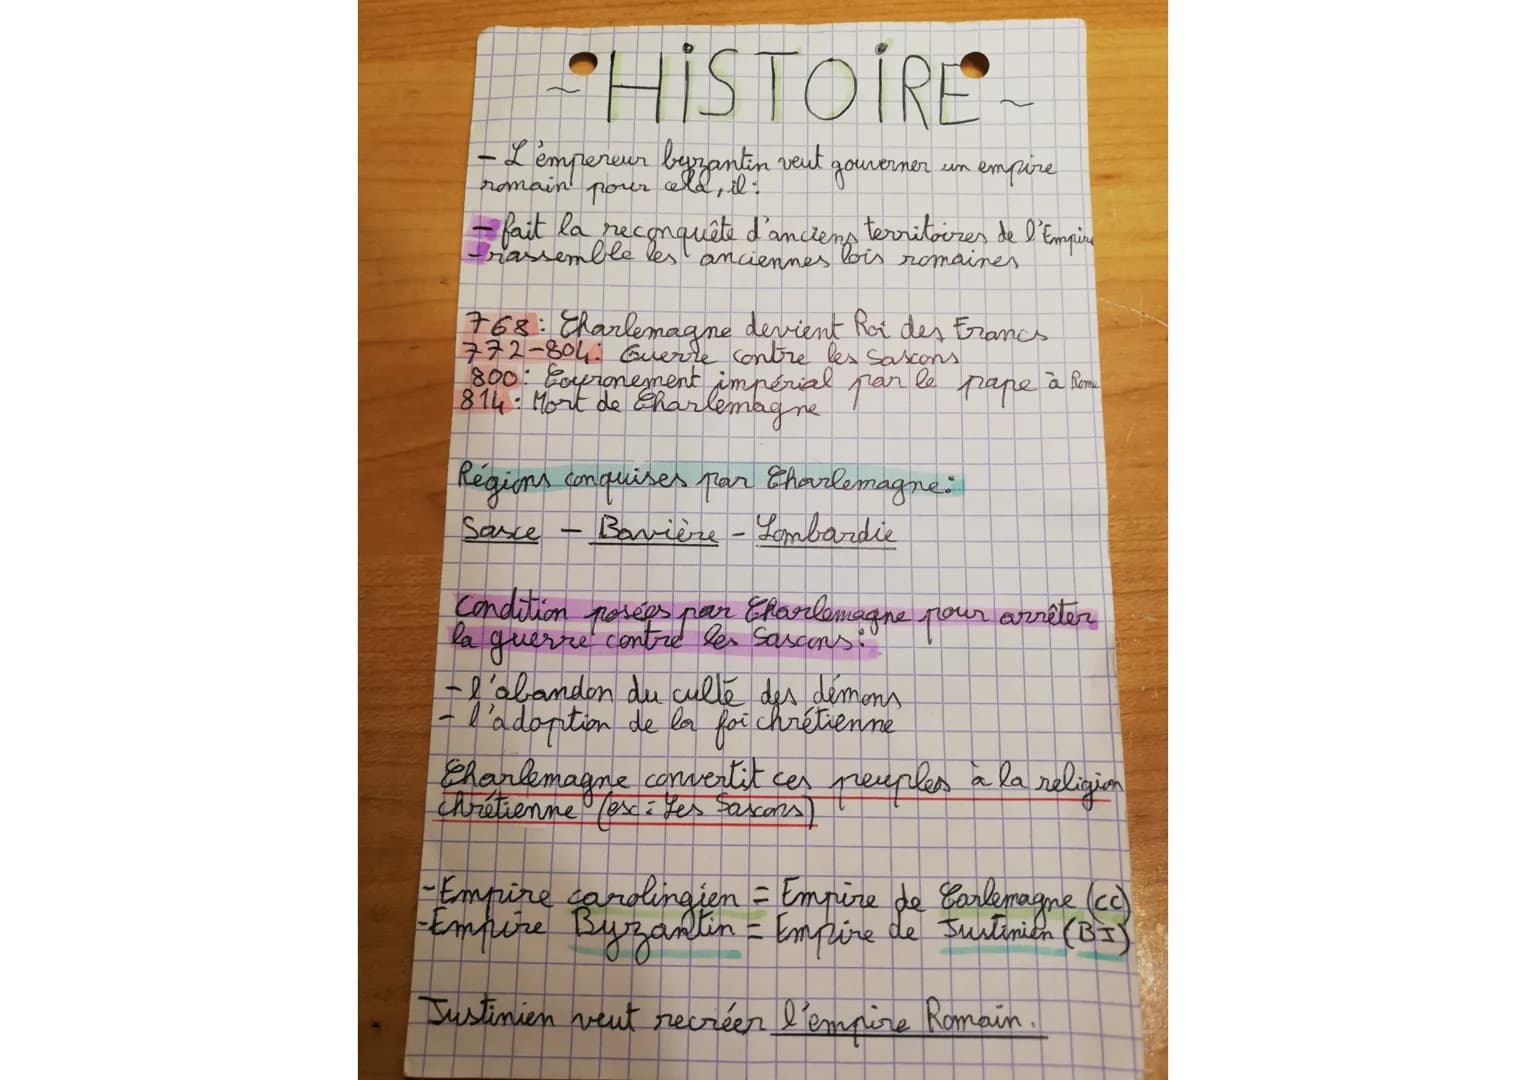 ~ HiSTOiRE ~
- L'empereur byzantin veut gouverner un empire
romain pour cela, il :
- fait la reconquête d'anciens territoires de l'Empire
- rassemble les anciennes lois romaines
768 : Charlemagne devient Roi des Francs
772-804 : Guerre contre les Saxons
800 : Couronement impérial par le pape à Rome
814 : Mort de Charlemagne
Régions conquises par Charlemagne :
Saxe - Bavière - Lombardie
Condition posées par Charlemagne pour arrêter
la guerre contre les Saxons :
- l'abandon du culte des démons
- l'adoption de la foi chrétienne
Charlemagne convertit ces peuples à la religion
chrétienne (ex : Les Saxons)
- Empire carolingien = Empire de Carlemagne (CC)
- Empire Byzantin = Empire de Justinien (BJ)
Justinien veut recréer l'empire Romain.